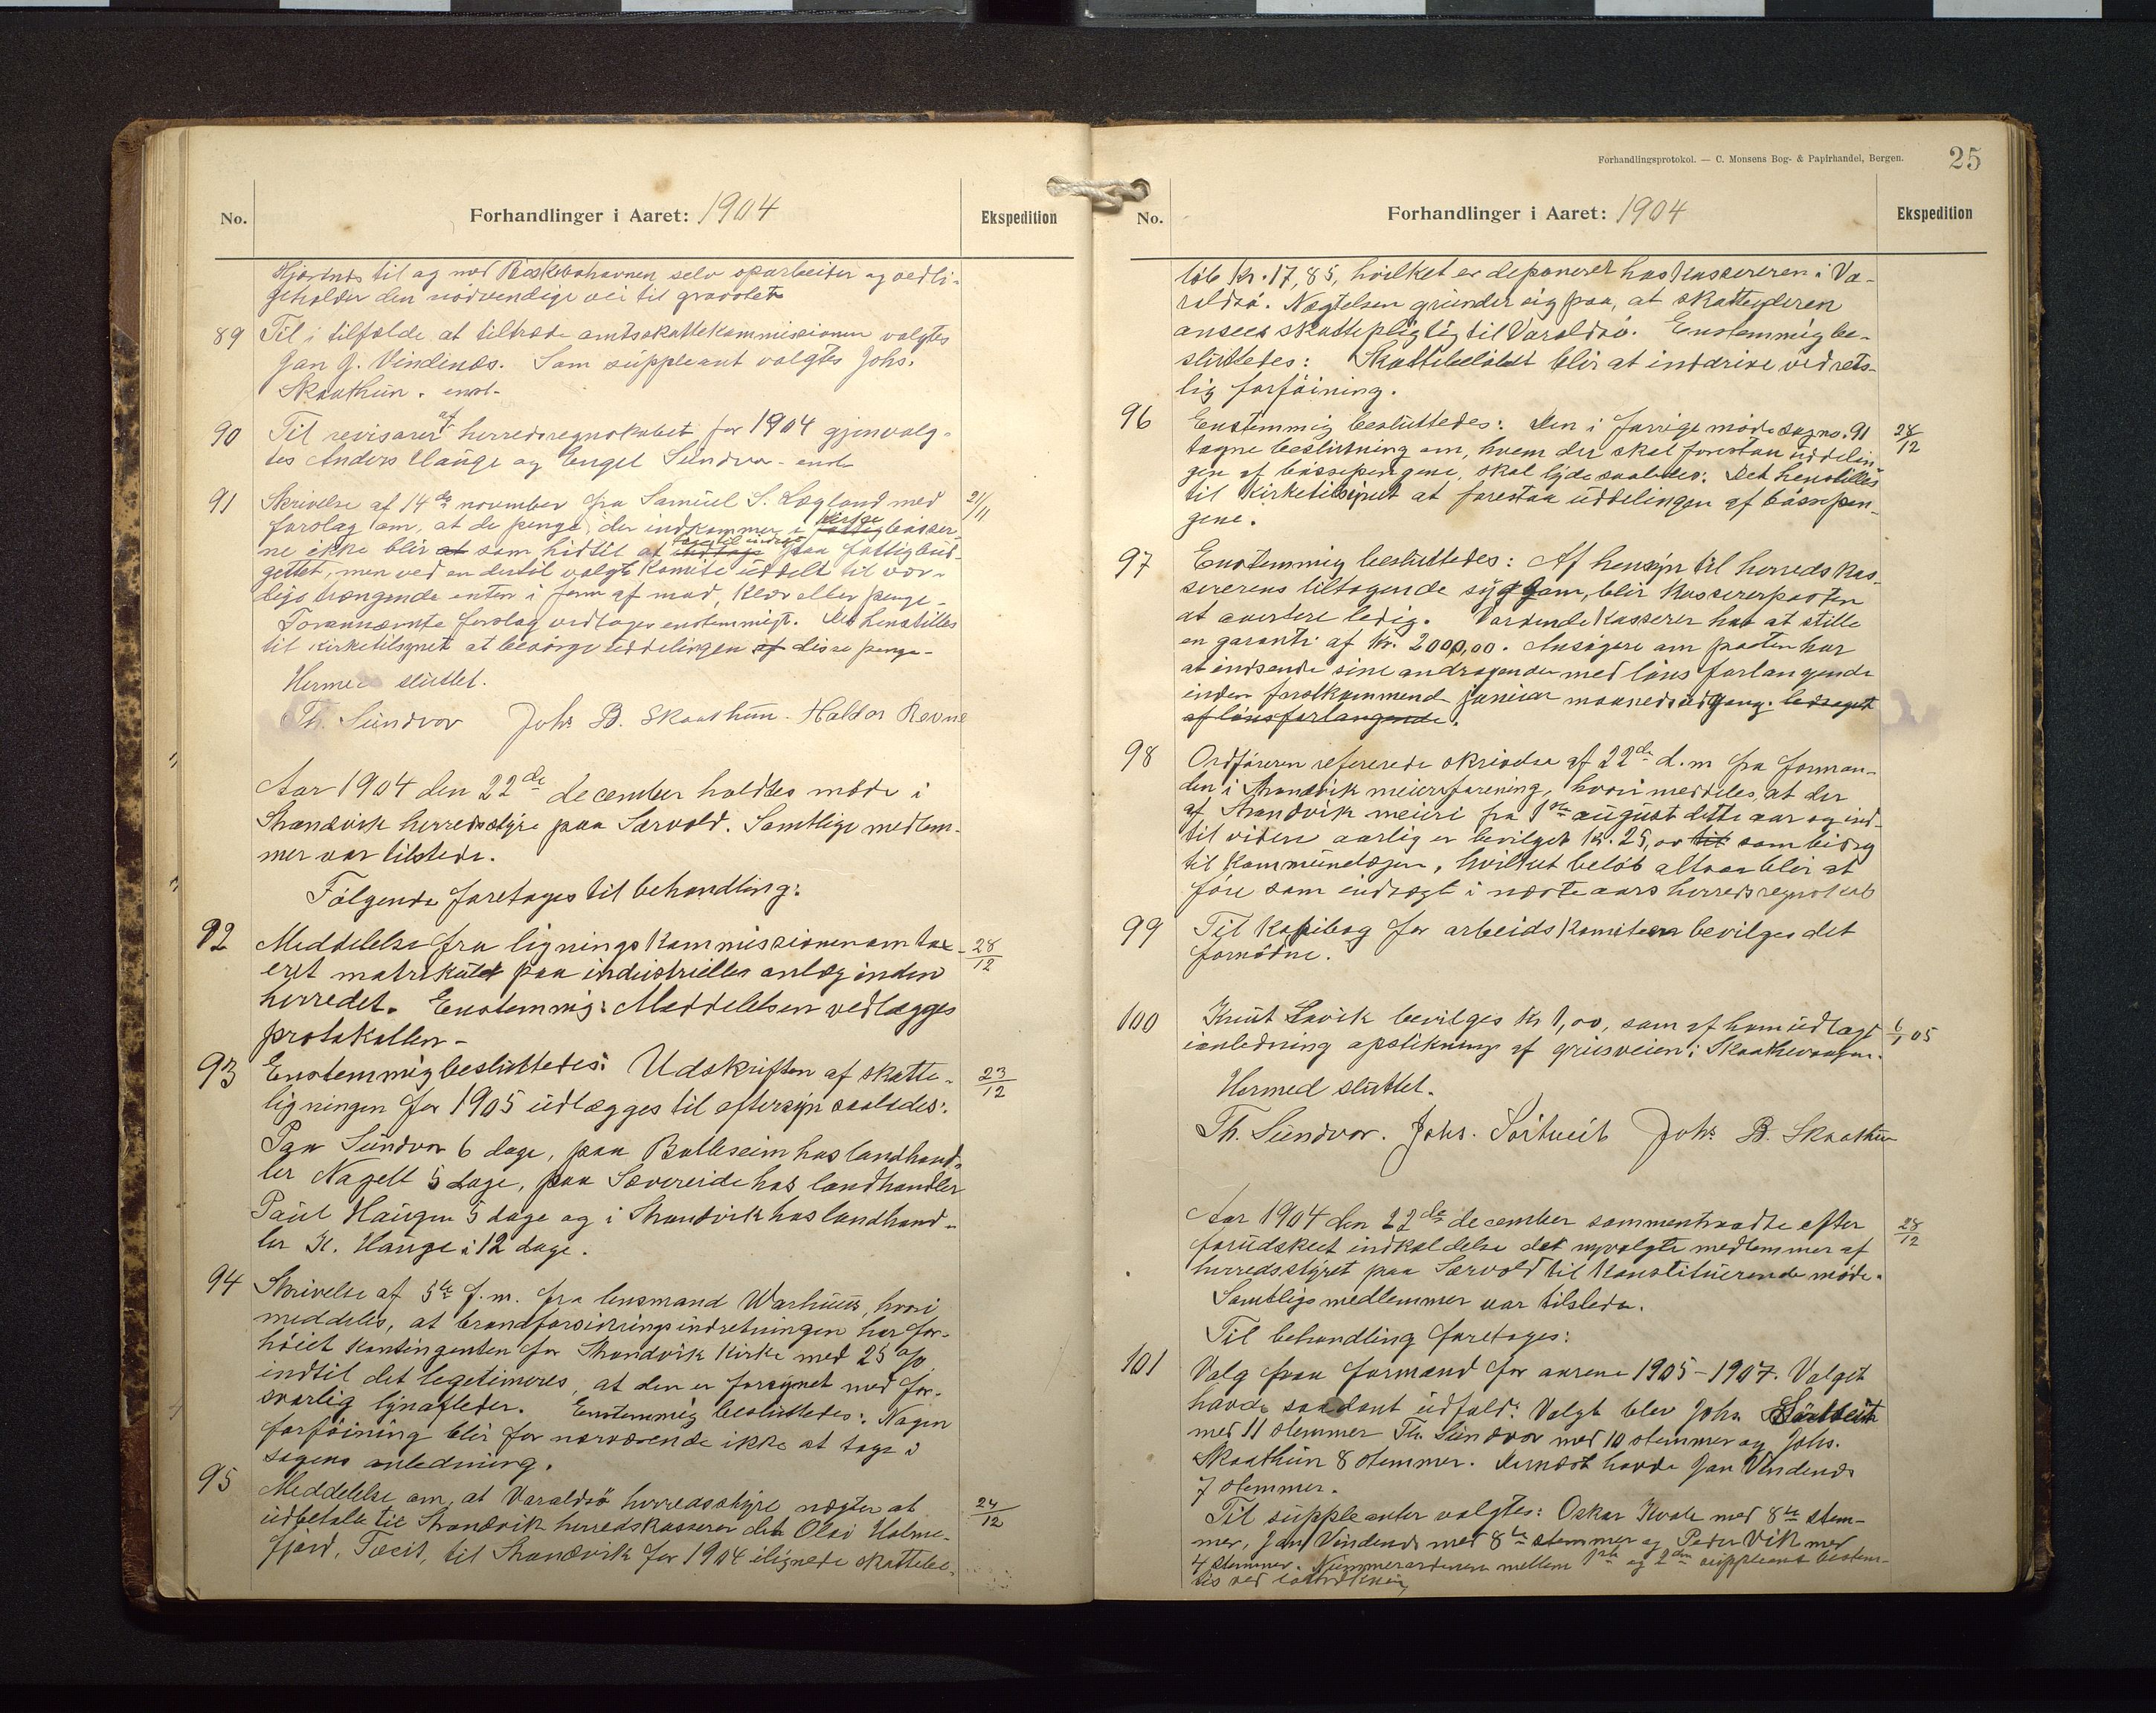 No. Forhandlinger i Aaret: 1904 Ekspedition
Hjørtnes til og med Røskebohavnen selv oparbeider og vedli-
geholder den nödvendige vei til gravstet
89 Til i tilfælde at tiltræde amtsskattekommissionen valgtes
Jan J. Vindenes. Som suppleant valgtes Johs.
Skaathun. enst.
90 Til revisorer af herredsregnskabet for 1904 gjenvalg-
tes Anders Hauge og Engel Sundvor - enst.
91 Skrivelse af 14de november fra Samuel S. Lægland med 21/11
forslag om, at de penge, der indkommer i fattig kirke bösser-
ne ikke blir at som hidtil at indtage tage til indtægt paa fattigbud-
gettet, men ved en dertil valgt komite uddelt til vær-
dige trængende enten i form af mad, klær eller penge.
Forannævnte forslag vedtages enstemmigt. Det henstilles
til kirketilsynet at besörge uddelingen af disse penge.
Hermed sluttet.
Th. Sundvor Johs B. Skaathun. Haldor Revne
Aar 1904 den 22de december holdtes möde i
Strandvik herredsstyre paa Særvold. Samtlige medlem-
mer var tilstede.
Fölgende foretages til behandling:
92 Meddelelse fra ligningskommissionen om tax- 28/12
eret matrikulet paa industrielle anlæg inden
herredet. Enstemmig: Meddelelsen vedlægges
protokollen -
93 Enstemmig besluttedes: Udskriften af skatte- 23/12
ligningen for 1905 udlægges til eftersyn saaledes:
Paa Sundvor 6 dage, paa Bolleseim hos landhand-
ler Nagell 5 dage, paa Sævereide hos landhandler
Paul Haugen 5 dage og i Strandvik hos landhand-
ler K. Hauge i 12 dage.
94 Skrivelse af 5te f. m. fra lensmand Warhuus, hvori
meddeles, at brandforsikringsindretningen har for-
höiet kontingenten for Strandvik kirke med 25 %
indtil det legitimeres, at den er forsynet med for-
svarlig lynafleder. Enstemmig besluttedes: Nogen
forföining blir for nærværende ikke at tage i
sagens anledning.
95 Meddelelse om, at Varaldsö herredsstyre nægter at 24/12
udbetale til Strandvik herredskasserer det Olai Holme-
fjord, Tveit, til Strandvik for 1904 ilignede skattebe-
Forhandlingsprotokol. — C. Monsens Bog- & Papirhandel, Bergen. 25
No. Forhandlinger i Aaret: 1904 Ekspedition
löb kr. 17,85, hvilket er deponeret hos kassereren i Va-
raldsö. Nægtelsen grunder sig paa, at skatteyderen
ansees skattepligtig til Varaldsö. Enstemmig be-
sluttedes: Skattebelöbet blir at inddrive ved rets-
lig forföining.
96 Enstemmig besluttedes: Den i forrige möde sag no. 91 28/12
tagne beslutning om, hvem der skal forestaa uddelin-
gen af bössepengene, skal lyde saaledes: Det henstilles
til kirketilsynet at forestaa uddelingen af bössepen-
gene.
97 Enstemmig besluttedes: Af hensyn til herredskas-
sererens tiltagende sygdom, blir kassererposten
at avertere ledig. Vordende kasserer har at stille
en garanti af kr. 2000,00. Ansögere om posten har
at indsende sine andragender med lönsforlangende
inden förstkommend januar maaneds udgang. ledsaget
af lönsforlangende.
98 Ordföreren refererede skrivelse af 22de d. m fra forman-
den i Strandvik meieriforening, hvori meddeles, at der
af Strandvik meieri fra 1ste august dette aar og ind-
til videre aarlig er bevilget kr. 25,00 til som bidrag
til kommunelægen, hvilket belöb altsaa blir at
före som indtægt i næste aars herredsregnskab
99 Til kopibog for arbeidskomiteen bevilges det
fornödne.
100 Knut Lavik bevilges kr 1,00, som af ham udlagt 6/1 05
i anledning opstikning af grusveien i Skaathevaagen.
Hermed sluttet.
Th. Sundvor. Johs. Sörtveit Johs B. Skaathun
Aar 1904 den 22de december sammentraadte efter 28/12
forudskeet indkaldelse det nyvalgte medlemmer af
herredsstyret paa Særvold til konstituerende möde.
Samtlige medlemmer var tilstede.
Til behandling foretages:
101 Valg paa formand for aarene 1905-1907. Valget
havde saadant udfald: Valgt blev Johs Sörtveit
med 11 stemmer Th. Sundvor med 10 stemmer og Johs.
Skaathun 8 stemmer. Dernæst havde Jan Vindenes
7 stemmer.
Til suppleanter valgtes: Oskar Kvale med 8te stem-
mer, Jan Vindenes med 8te stemmer og Peder Vik med
4 stemmer. Nummerordenen mellem 1ste og 2den suppleant bestem-
tes ved lodtrækning